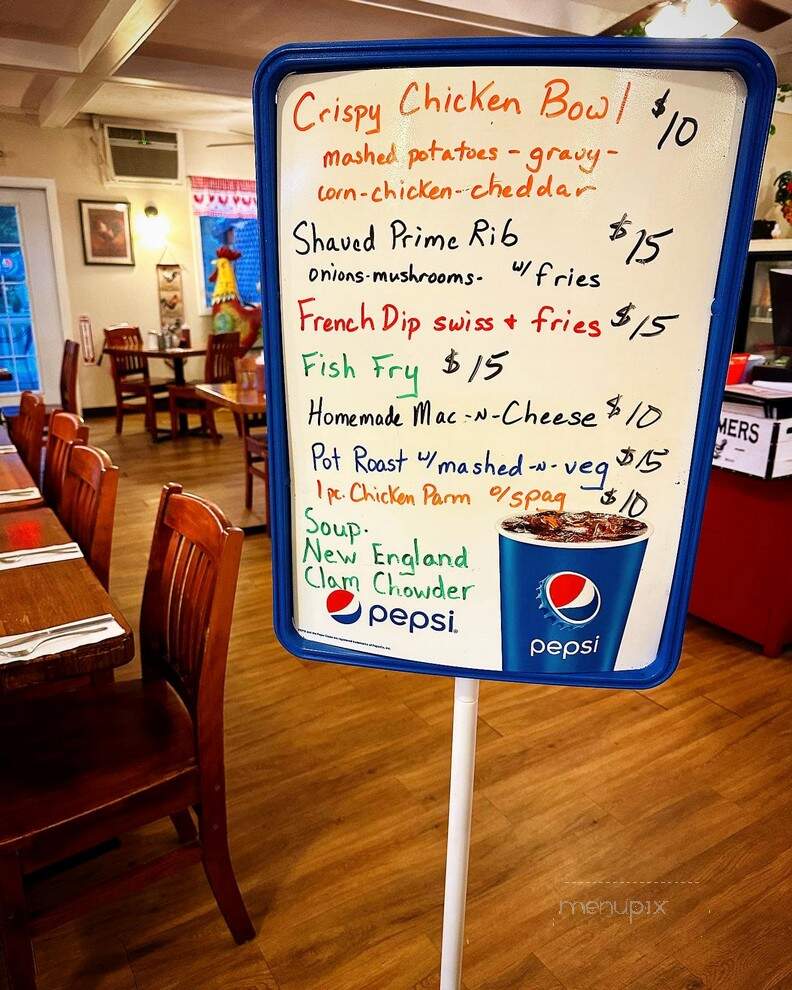 Crispy Chicken Bowl $10
mashed potatoes - gravy -
corn - chicken - cheddar
Shaved Prime Rib $15
onions - mushrooms - w/ fries
French Dip swiss + fries $15
Fish Fry $15
Homemade Mac -N- Cheese $10
Pot Roast w/ mashed -n- veg $15
1 pc. Chicken Parm o/ spag $10
Soup.
New England
Clam Chowder
pepsi
pepsi
MERS
menupix